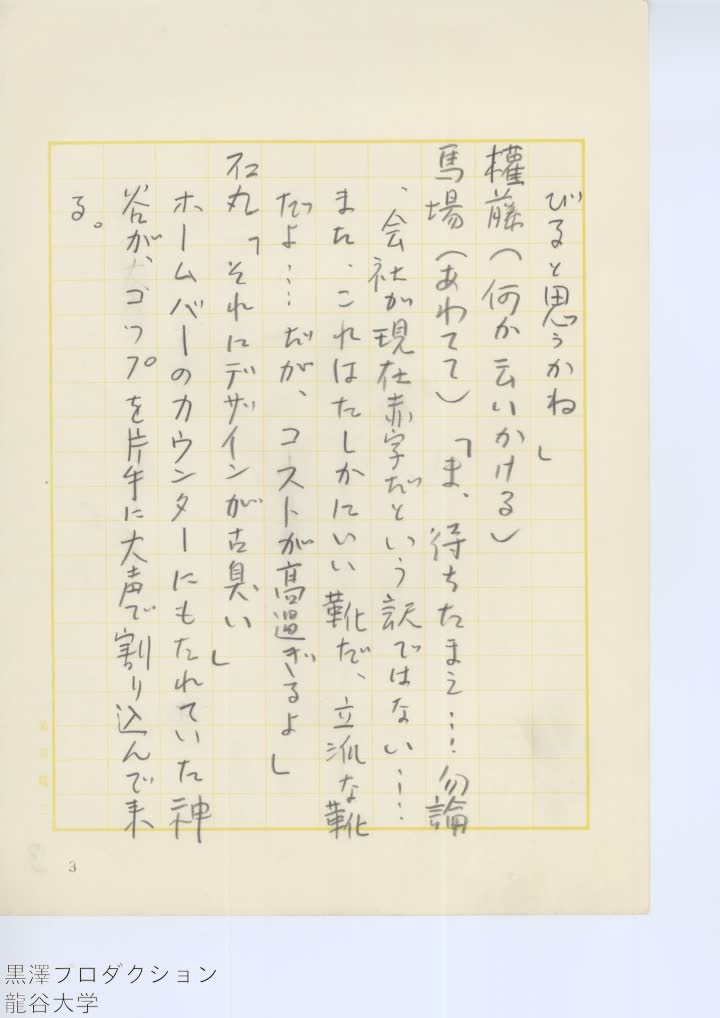 びると思うかね」
權藤(何か云いかける)
馬場(あわてて)「ま、待ちたまえ…！勿論
、会社が現在赤字だという訳ではない……
また、これはたしかにいい靴だ、立派な靴
だよ……だが、コストが高過ぎるよ」
石丸「それにデザインが古臭い」
ホームバーのカウンターにもたれていた神
谷が、コップを片手に大声で割り込んで来
る。
3
黒澤プロダクション
龍谷大学